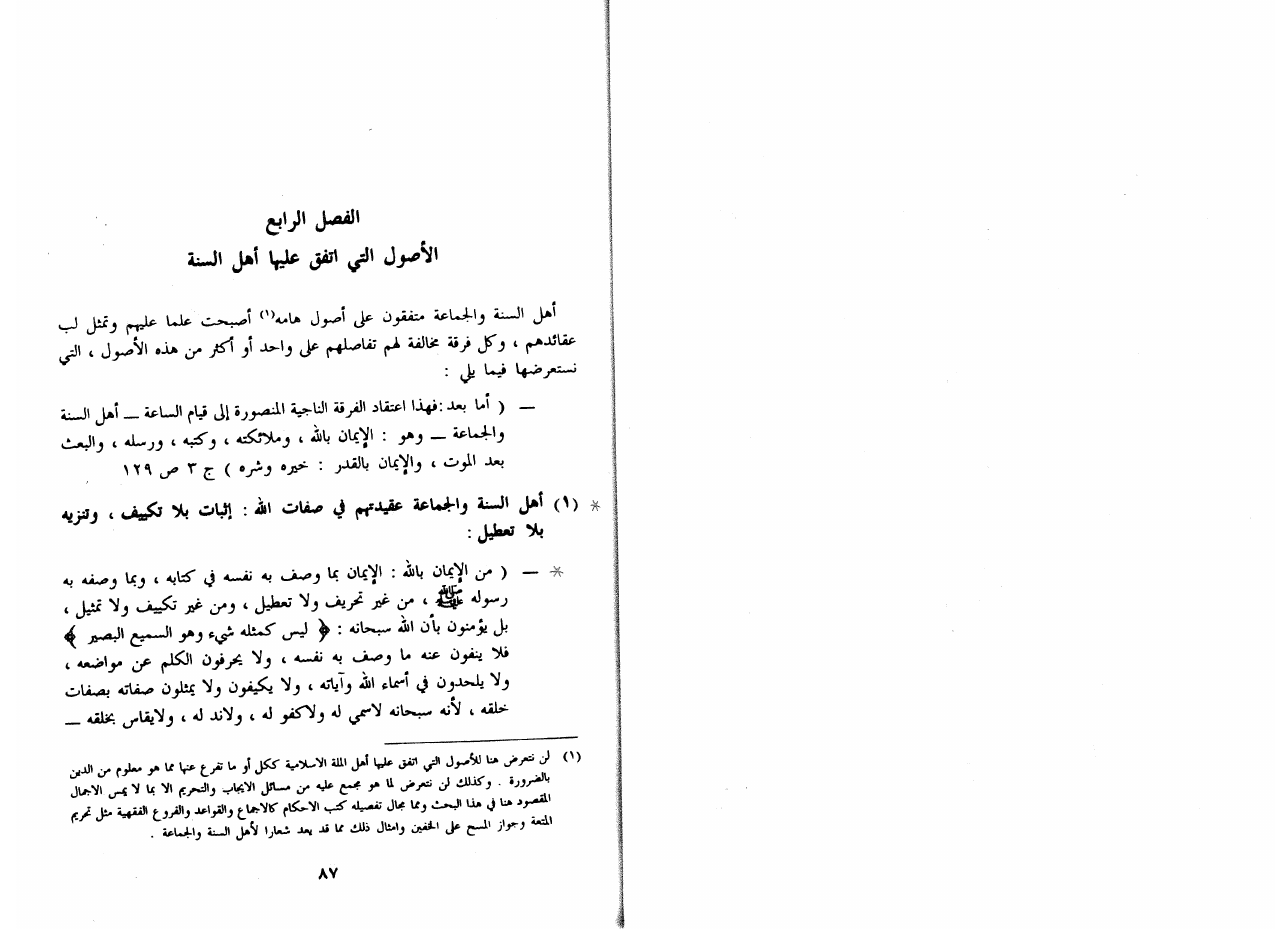 الفصل الرابع
الأصول التي اتفق عليها أهل السنة
أهل السنة والجماعة متفقون على أصول هامه(١) أصبحت علما عليهم وتمثل لب
عقائدهم ، وكل فرقة مخالفة لهم تفاصلهم على واحد أو أكثر من هذه الأصول ، التي
نستعرضها فيما يلي :
— ( أما بعد :فهذا اعتقاد الفرقة الناجية المنصورة إلى قيام الساعة — أهل السنة
والجماعة — وهو : الإيمان بالله ، وملائكته ، وكتبه ، ورسله ، والبعث
بعد الموت ، والإيمان بالقدر : خيره وشره ) ج ٣ ص ١٢٩
* (١) أهل السنة والجماعة عقيدتهم في صفات الله : إثبات بلا تكييف ، وتنزيه
بلا تعطيل :
* — ( من الإيمان بالله : الإيمان بما وصف به نفسه في كتابه ، وبما وصفه به
رسوله ﷺ ، من غير تحريف ولا تعطيل ، ومن غير تكييف ولا تمثيل ،
بل يؤمنون بأن الله سبحانه : ﴿ ليس كمثله شيء وهو السميع البصير ﴾
فلا ينفون عنه ما وصف به نفسه ، ولا يحرفون الكلم عن مواضعه ،
ولا يلحدون في أسماء الله وآياته ، ولا يكيفون ولا يمثلون صفاته بصفات
خلقه ، لأنه سبحانه لاسمي له ولاكفو له ، ولاند له ، ولايقاس بخلقه —
(١) لن نتعرض هنا للأصول التي اتفق عليها أهل الملة الاسلامية ككل أو ما تفرع عنها مما هو معلوم من الدين
بالضرورة . وكذلك لن نتعرض لما هو مجمع عليه من مسائل الايجاب والتحريم الا بما لا يمس الاجمال
المقصود هنا في هذا البحث ومما مجال تفصيله كتب الاحكام كالاجماع والقواعد والفروع الفقهية مثل تحريم
المتعة وجواز المسح على الخفين وامثال ذلك مما قد يعد شعارا لأهل السنة والجماعة .
٨٧